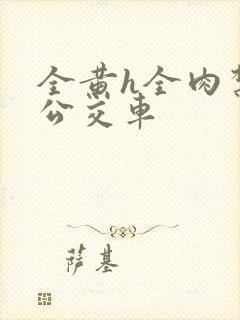 全黄h全肉
公交车
萨基